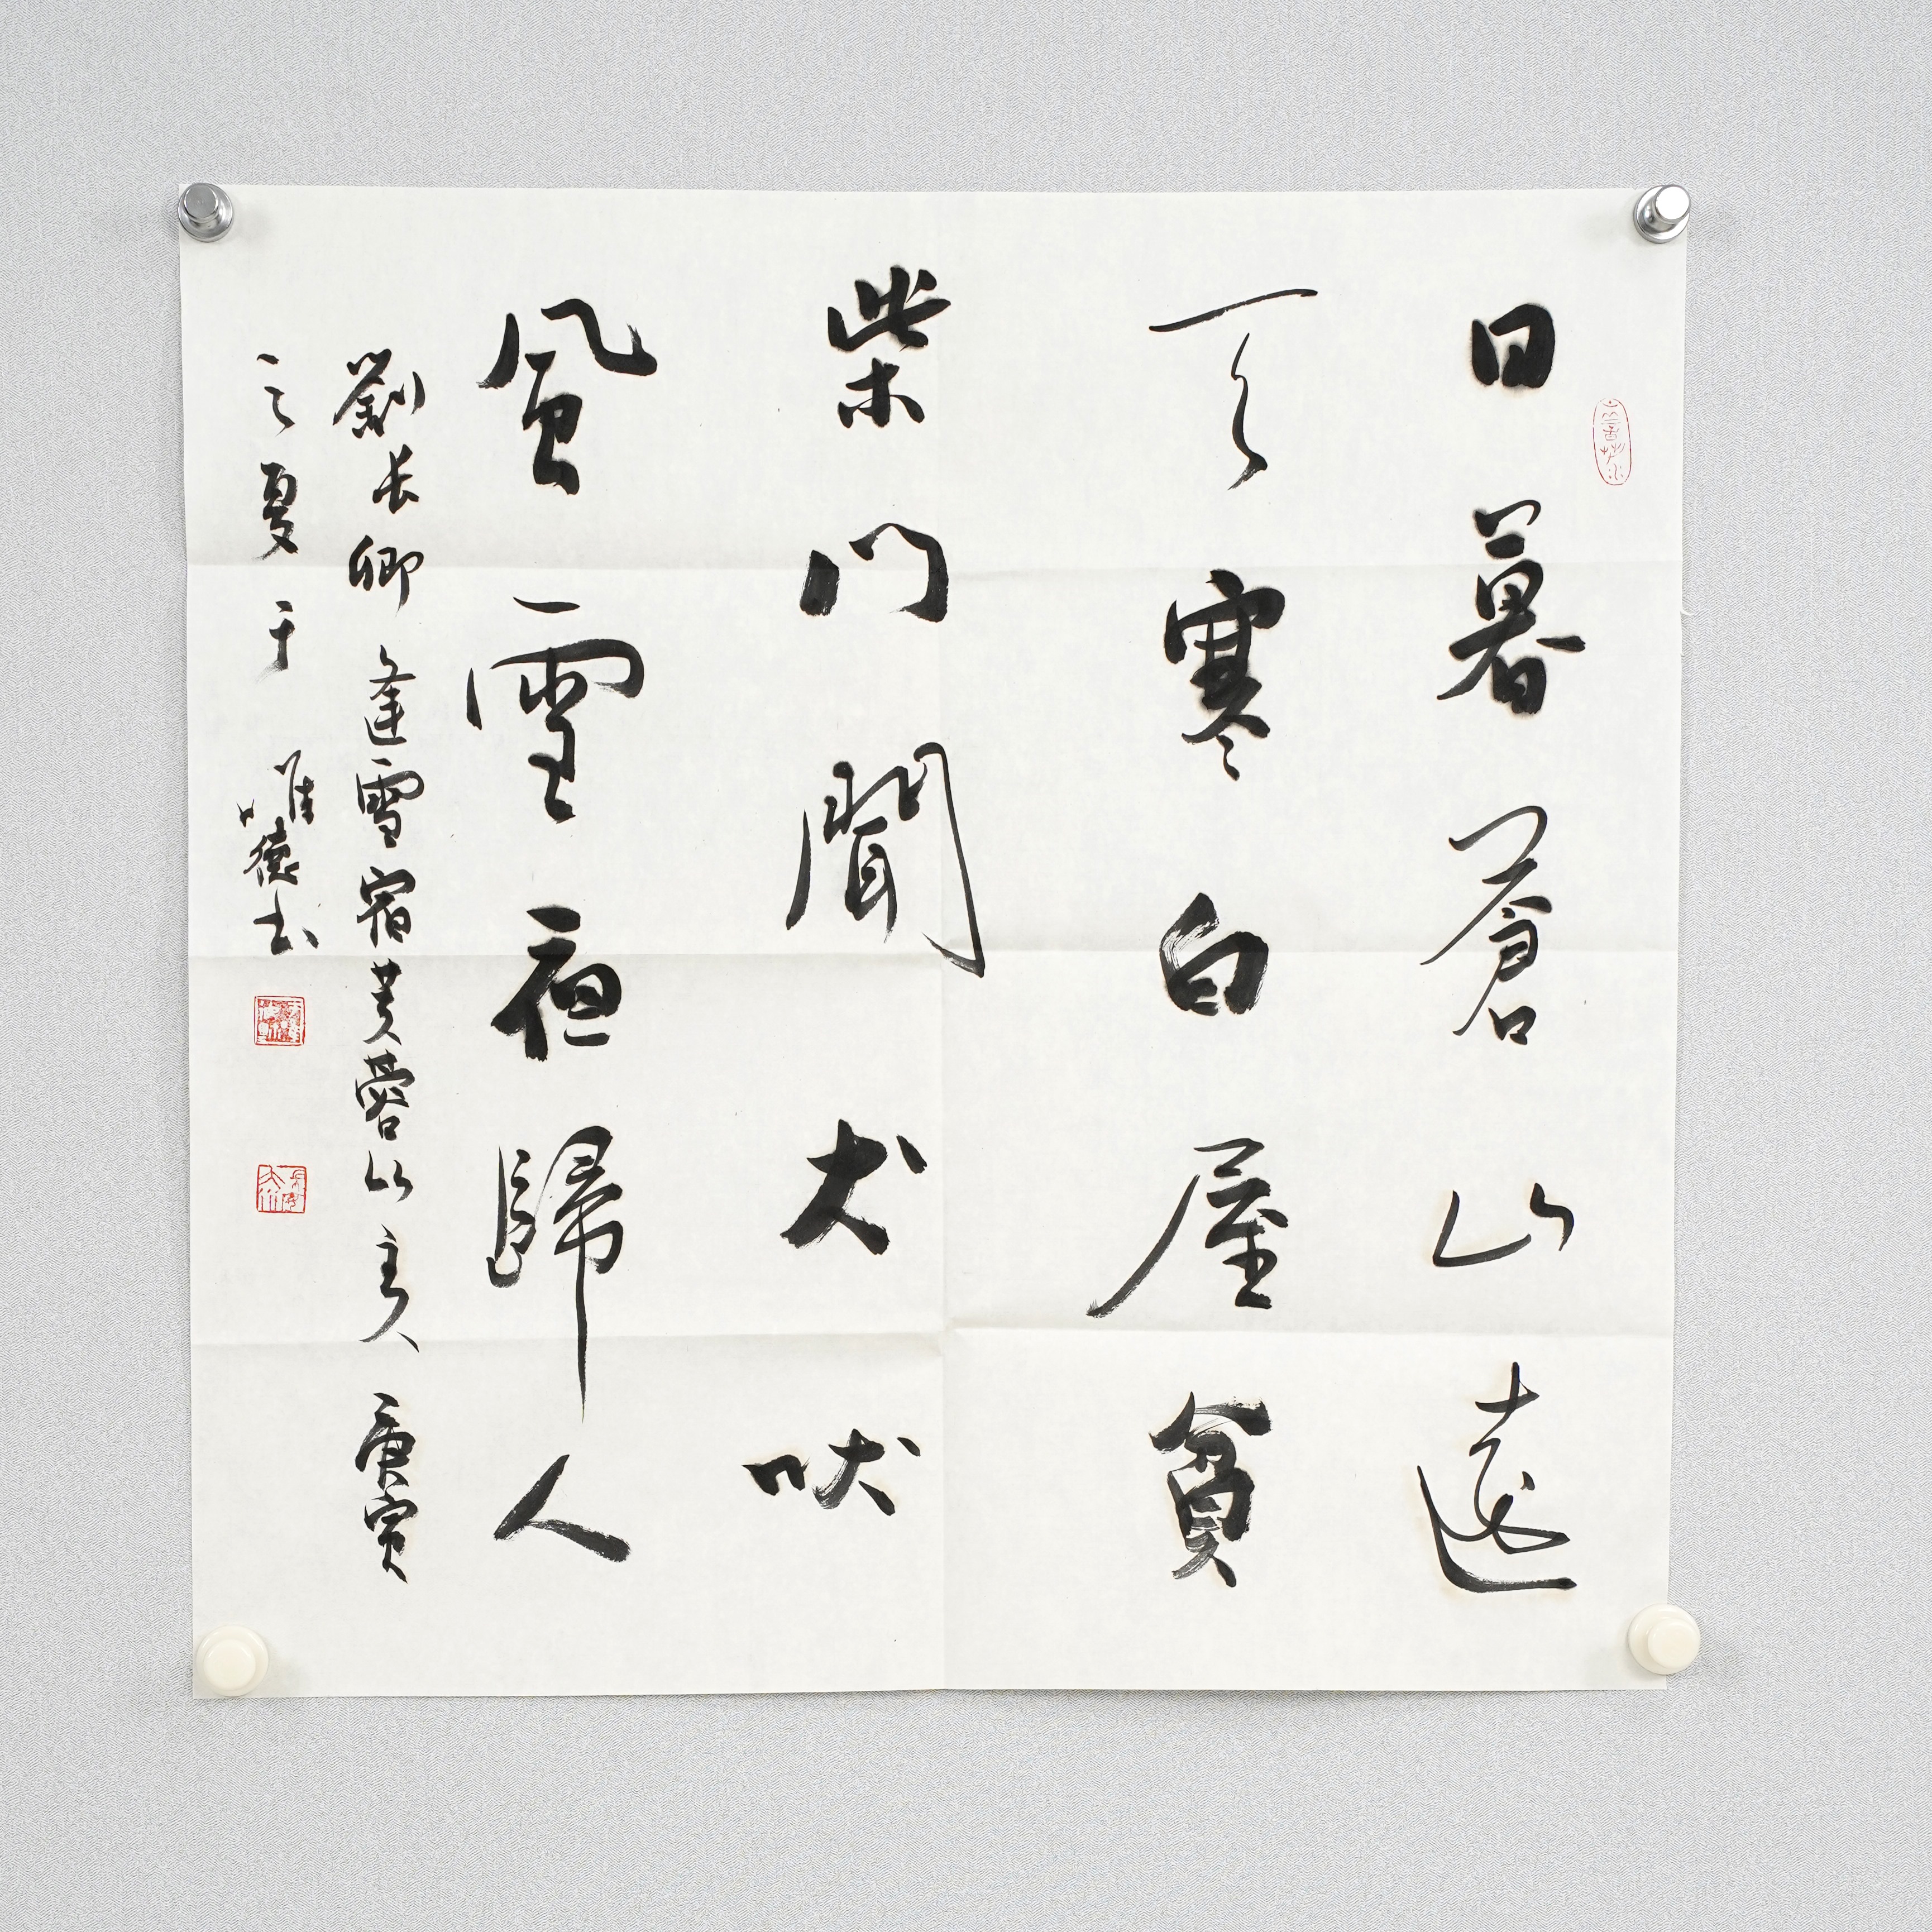 日暮蒼山遠
天寒白屋貧
柴門聞犬吠
風雪夜歸人
劉長卿逢雪宿芙蓉山主人 庚寅
之夏于 唯德书